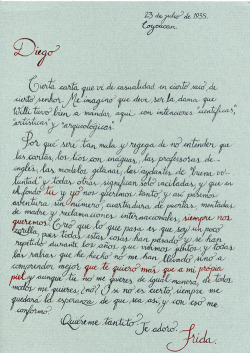 23 de julio de 1935.
Coyoacan.
Diego
Cierta carta que vi de casualidad en cierto saco de
cierto señor. Me imagino que deve ser la dama que
Willi tuvo bien a mandar aquí con intenciones "científicas",
"artísticas" y "arqueológicas".
Por que seré tan mula y rejega de no entender que
las cartas, los líos con enaguas, las profesoras de
inglés, las modelos gitanas, las ayudantes de "buena vo-
luntad" y todas otras, significan solo vaciladas, y que en
el fondo tú y yo nos queremos tanto, y así aventura
aventura sin número, cuarteadura de puertas, mentadas
de madre y reclamaciones internacionales, siempre nos
queremos. Creo que lo que pasa es que soy un poco
zorrilla, pues todas estas cosas han pasado y se han
repetido durante los años que vivimos juntos y todas
las rabias que he hecho no me han llevado sino a
comprender mejor que te quiero mas que a mi propia
piel, y aunque tú no me quieres de igual manera, de todos
modos me quieres ¿no? O si no es cierto, siempre me
quedará la esperanza de que sea así, y con eso me
conformo.
Quiéreme tantito. Te adoro.
Frida.